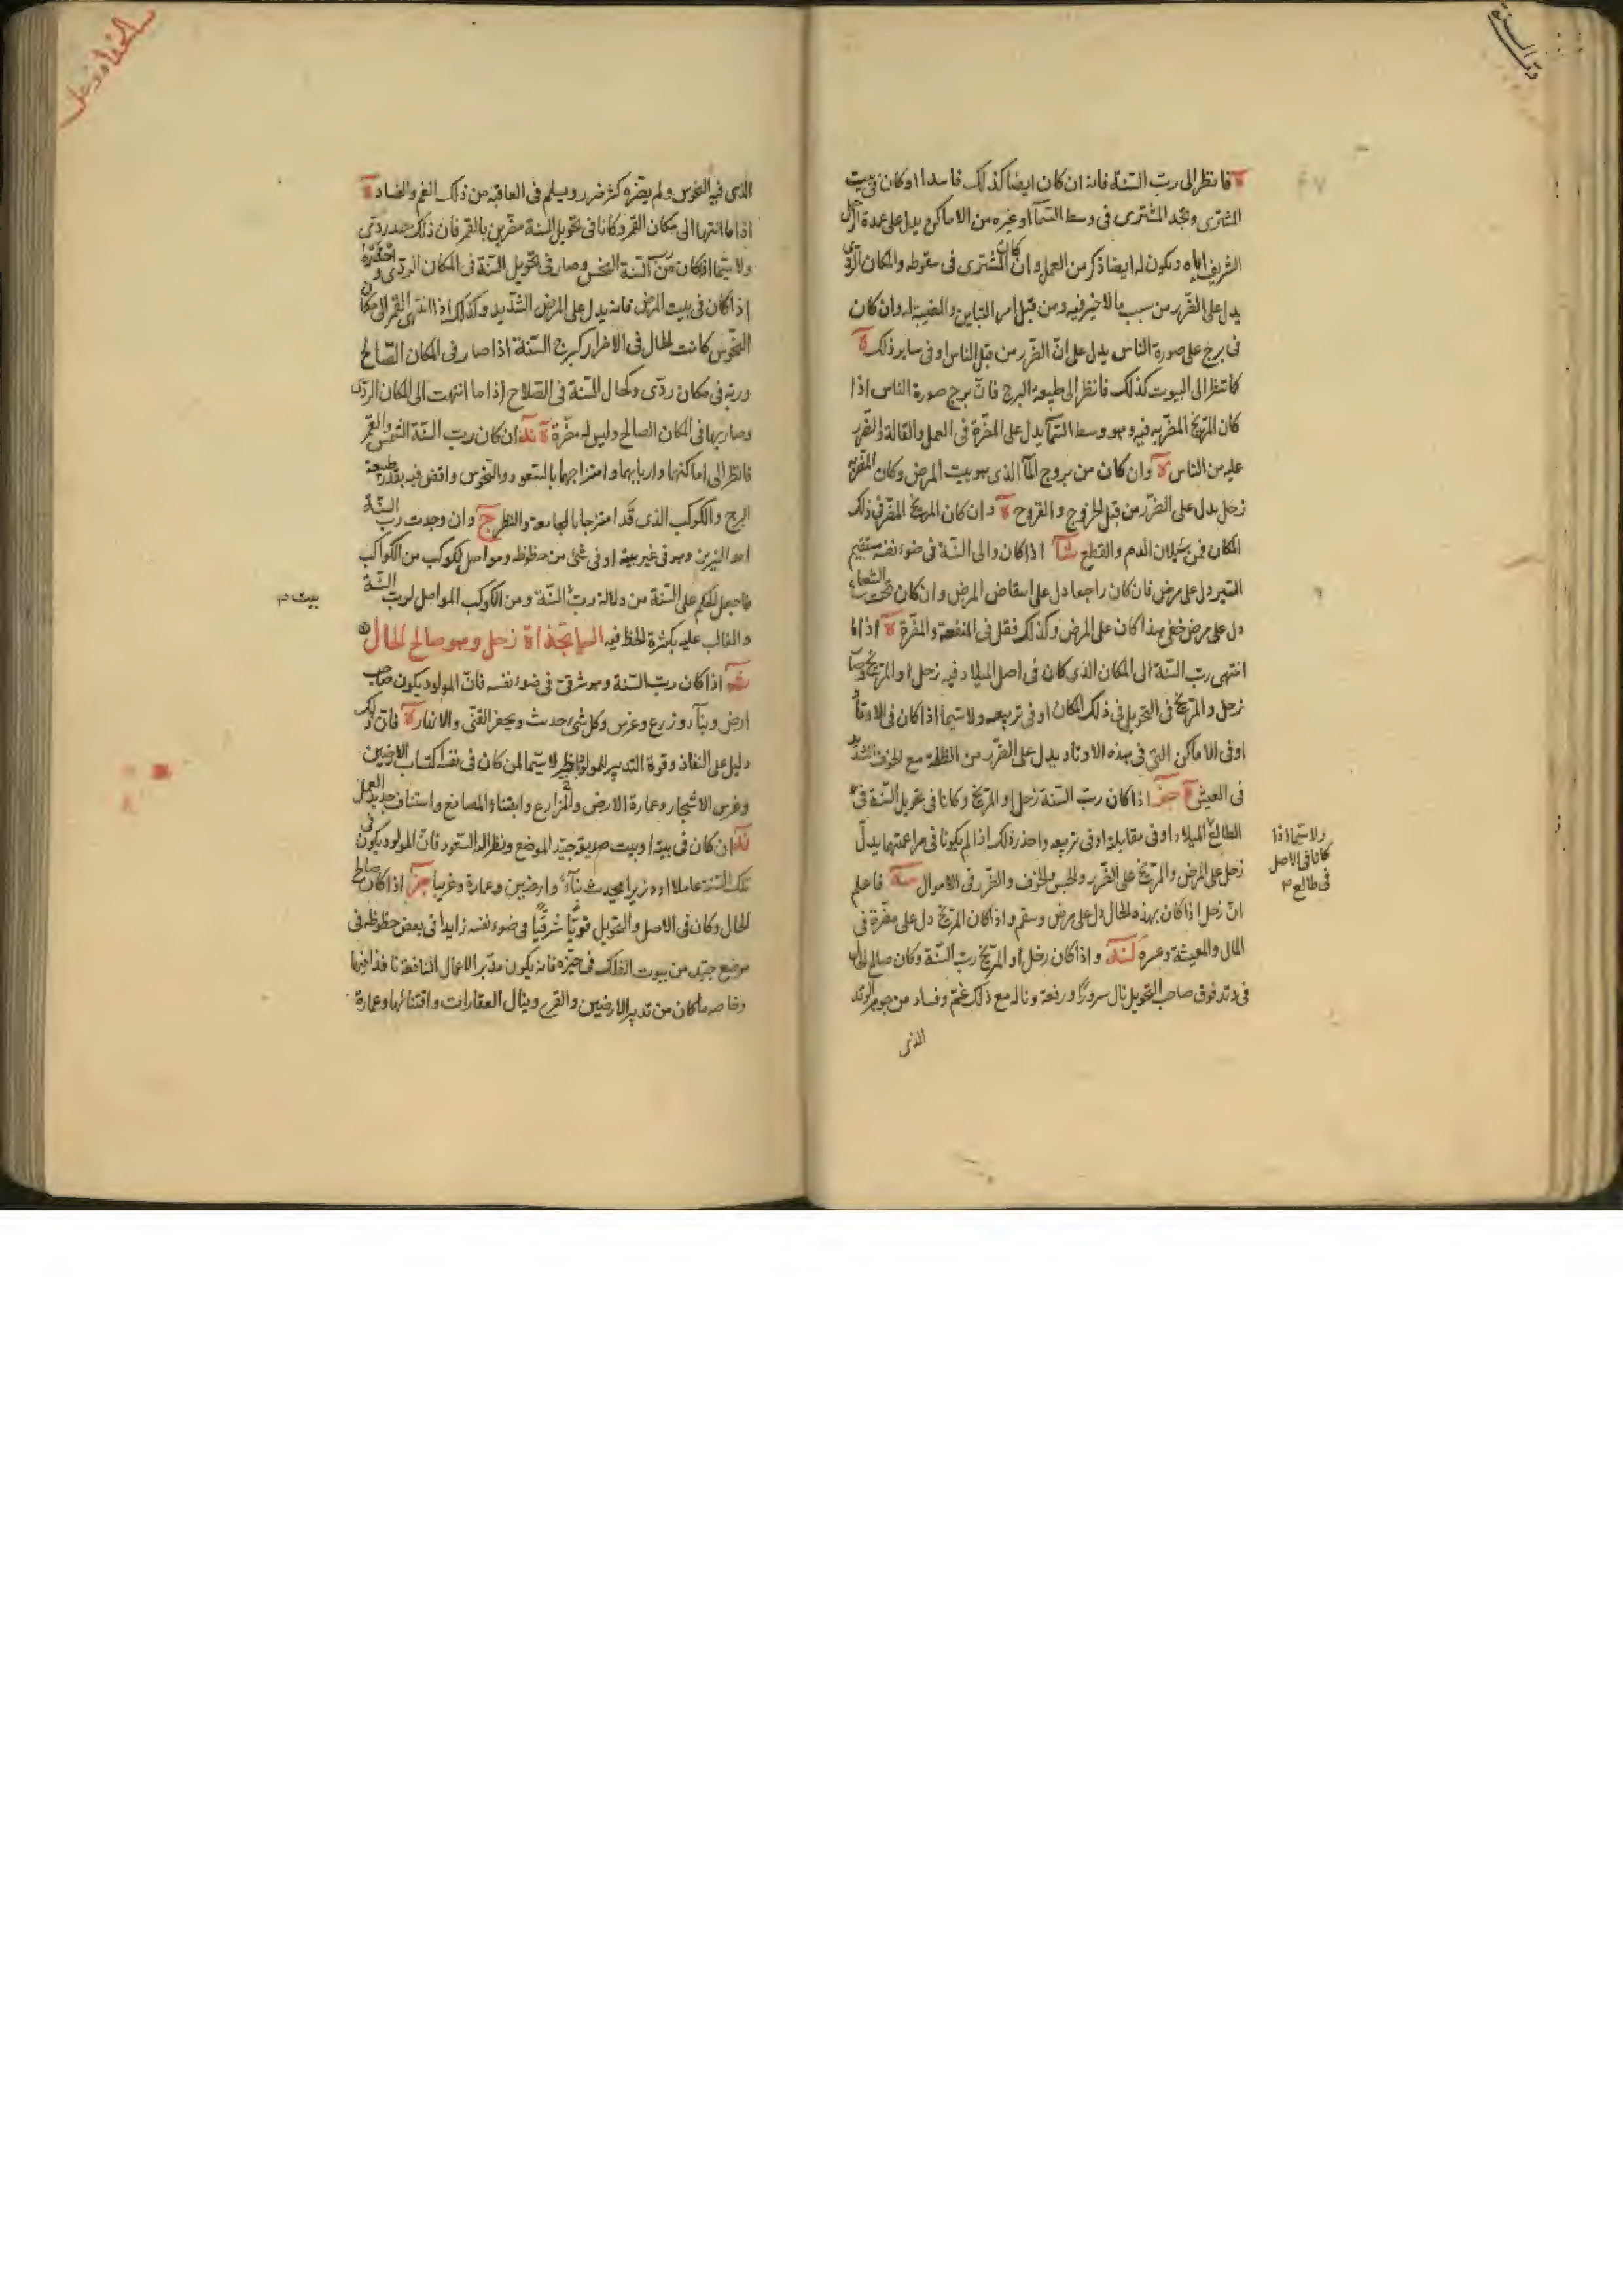 فانظر الى رب السنة فانه ان كان ايضا كذلك فاسدا او كان في بيت
المشترى وتجد المشترى فى وسط السمآ او غيره من الاماكن ويدل على عدة
الشريف اياه ويكون له ايضا ذكر من العمل وان كان المشترى فى سقوطه والمكان الردى
يدل على الضرر من سبب ما لا خير فيه ومن قبل امر والغيبة له وان كان
فى برج على صورة الناس يدل على ان الضرر من قبل الناس او فى ساير ذلك
كما تنظر الى البيوت كذلك فانظر الى طبيعة البرج فان برج صورة الناس اذا
كان المريخ المضر به فيه وهو وسط السمآ يدل على المضرة فى العمل والقالة والضرر
عليه من الناس وان كان من بروج المآ الذى هو بيت المرض وكان المضر به
زحل يدل على الضرر من قبل الخروج والقروح وان كان المريخ المضر فى ذلك
المكان فمن سيلان الدم والقطع اذا كان والى السنة فى ضوء نفسه مستقيم
السير دل على مرض فان كان راجعا دل على انتقاض المرض وان كان تحت الشعاع
دل على مرض خفى هذا كان على المرض وكذلك فقل فى المنفعة والمضرة اذا ما
انتهى رب السنة الى المكان الذى كان فى اصل الميلاد فيه زحل او المريخ وصار
زحل والمريخ فى التحويل فى ذلك المكان او فى تربيعه ولا سيما اذا كان فى الاوتاد
او فى الاماكن التى فى هذه الاوتاد يدل على الضرر من الظلمة مع الخوف الشديد
فى العيش اذا كان رب السنة زحل او المريخ وكانا فى تحويل السنة فى
الطالع الميلاد او فى مقابلة او فى تربيعه واحذر ذلك اذا لم يكونا فى مزاعمتهما يدل
ولا سيما اذا
كانا فى الاصل
فى طالع
زحل على المرض والمريخ على الضرر والحبس والخوف والضرر فى الاموال فاعلم
ان زحل اذا كان بهذه الحال دل على مرض وسقم واذا كان المريخ دل على مضرة فى
المال والمعيشة وعسره واذا كان زحل او المريخ رب السنة وكان صالح الحال
فى وتد فوق صاحب التحويل نال سرورا ورفعة وناله مع ذلك غم وفساد من جوهر الوتد
الذى
الذى فيه النحوس ولم يضره كثر ضرر ويسلم فى العاقبة من ذلك الغم والفساد
اذا ما انتهيا الى مكان القمر وكانا فى تحويل السنة مضرين بالقمر فان ذلك جد ردى
ولا سيما اذا كان من رب السنة النحس وصار فى تحويل السنة فى المكان الردى
اذا كان فى بيت المرض فانه يدل على المرض الشديد وكذلك اذا انتهى القمر الى مكان
النحوس كانت الحال فى الاضرار كبرج السنة اذا صار فى المكان الصالح
وربه فى مكان ردى وكحال السنة فى الصلاح اذا ما انتهت الى المكان الردى
وصار ربها فى المكان الصالح وليس له مضرة ان كان رب السنة الشمس والقمر
فانظر الى اماكنها واربابها وامتزاجها بالسعود والنحوس واقض فيه بقدر طبيعة
البرج والكوكب الذى قد امتزجا بالمجامعة والنظر وان وجدت رب السنة
احد النيرين وهو فى غير بيته او فى شئ من حظوظه ومواصل لكوكب من الكواكب
فاجعل الحكم على السنة من دلالة رب السنة ومن الكوكب المواصل لرب السنة
بيت
والغالب عليه بكثرة الحظ فيه زحل وهو صالح الحال
اذا كان رب السنة وهو شرقى فى ضوء نفسه فان المولود يكون صاحب
ارض وبنآ وزرع وغرس وكل شئ حدث ويحفر القنى والانهار فان ذلك
دليل على النفاذ وقوة التدبير للمولود لا سيما لمن كان فى نفسه اكتساب الارضين
وغرس الاشجار وعمارة الارض والمزارع وابتناء المصانع واستئناف جديد العمل
ان كان فى بيته او بيت صديقه جيد الموضع ونظر اليه السعود فان المولود يكون فى
تلك السنة عاملا او وزيرا يحدث بناء وارضين وعمارة وغربيا اذا كان صالح
الحال وكان فى الاصل والتحويل قويا شرقيا فى ضوء نفسه زايدا فى بعض حظوظه فى
موضع جيد من بيوت الفلك فى حيزه فانه يكون مدبر الاعمال النافعة نافذا فيها
وخاصه ما كان من تدبير الارضين والقرى وينال العقارات واقتنائها وعمارة